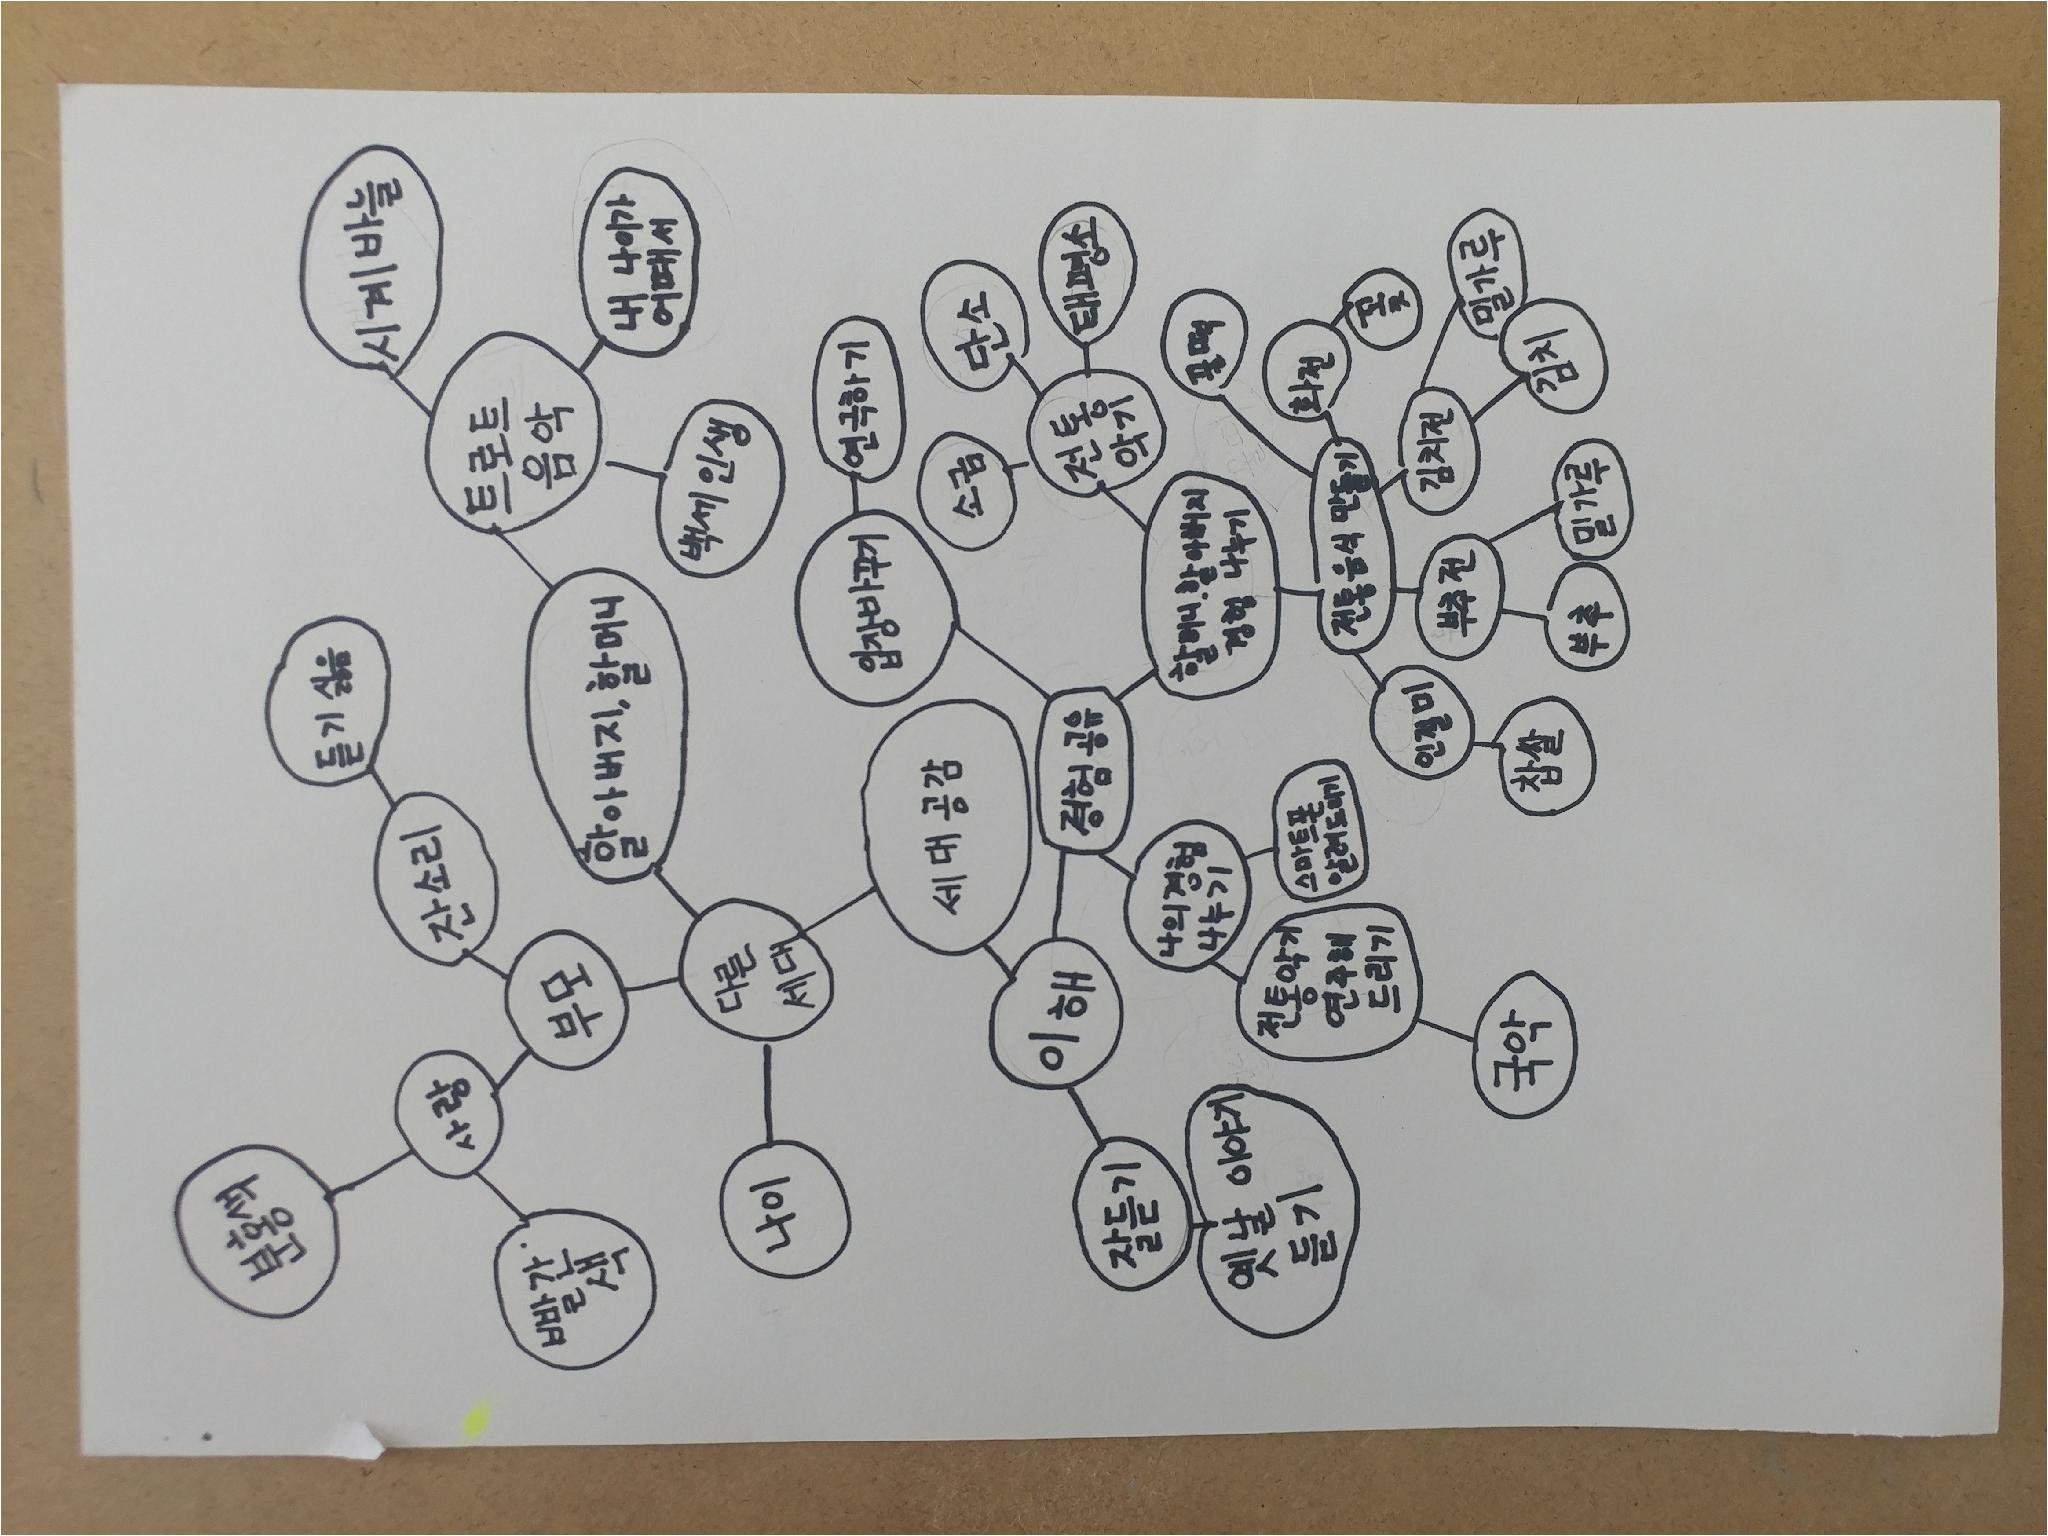 분홍색
듣기 싫음
시계바늘
사랑
잔소리
빨간
색
부모
할아버지, 할머니
트로트
음악
내 나이가
어때서
백세인생
나이
다른
세대
세대 공감
입장바꾸기
연극하기
소금
단소
이해
경험 공유
전통
악기
태평소
잘듣기
나의경험
나누기
할머니.할아버지
경험 나누기
옛날 이야기
듣기
전통악기
연주해
드리기
스마트폰
알려드리기
전통음식 만들기
화전
꽃
인절미
부추전
김치전
밀가루
국악
찹쌀
부추
밀가루
김치